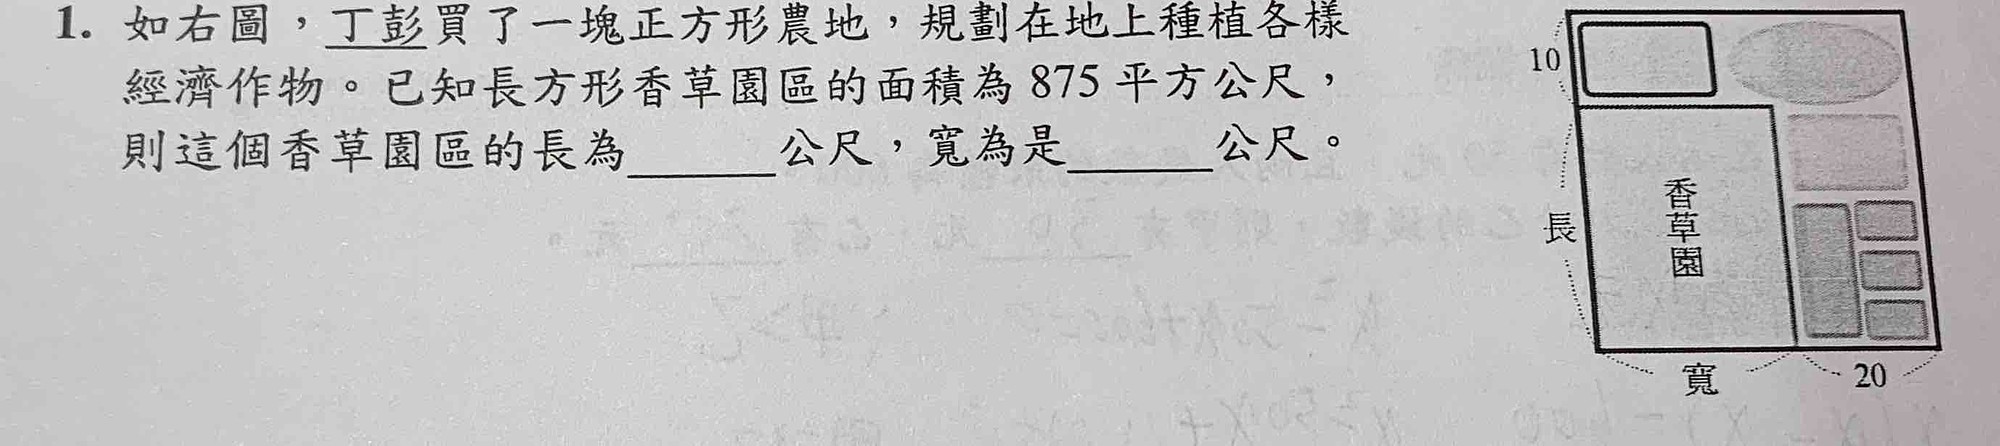 1. 如右圖，丁彭買了一塊正方形農地，規劃在地上種植各樣
經濟作物。已知長方形香草園區的面積為 875 平方公尺，
則這個香草園區的長為______公尺，寬為是______公尺。
10
長
香草園
寬
20